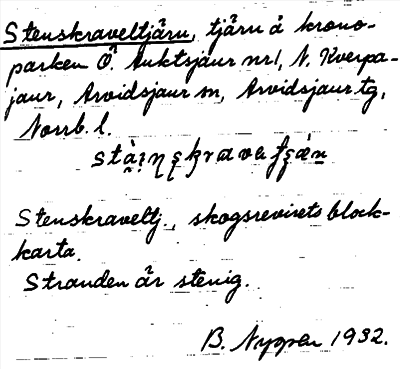 Stenskraveltjärn, tjärn å krono-
parken Ö. Auktsjaur nr 1, N. Kverpa-
jaur, Arvidsjaur sn, Arvidsjaur tg,
Norrb. l.
Stenskraveltj., skogsrevirets block-
karta.
Stranden är stenig.
B. Nygren 1932.